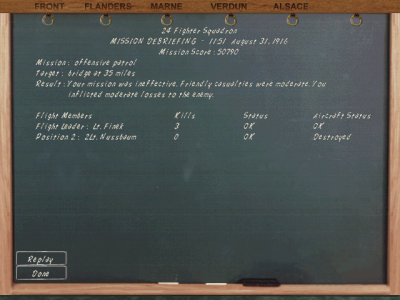 FRONT FLANDERS MARNE VERDUN ALSACE
24 Fighter Squadron
MISSION DEBRIEFING - 11:51 August 31, 1916
Mission Score: 50790
Mission: offensive patrol
Target: bridge at 35 miles
Result: Your mission was ineffective. Friendly casualties were moderate. You
inflicted moderate losses to the enemy.
Flight Members Kills Status Aircraft Status
Flight Leader: Lt. Finek 3 OK OK
Position 2: 2Lt. Nussbaum 0 OK Destroyed
Replay
Done